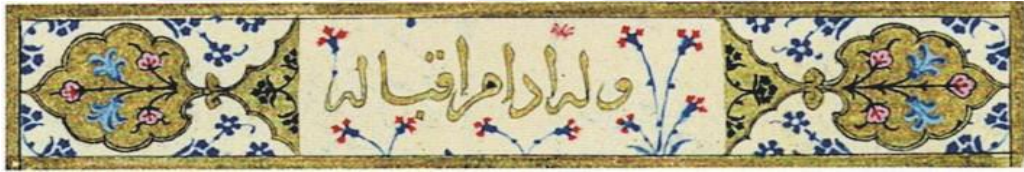 وله ادام اقباله